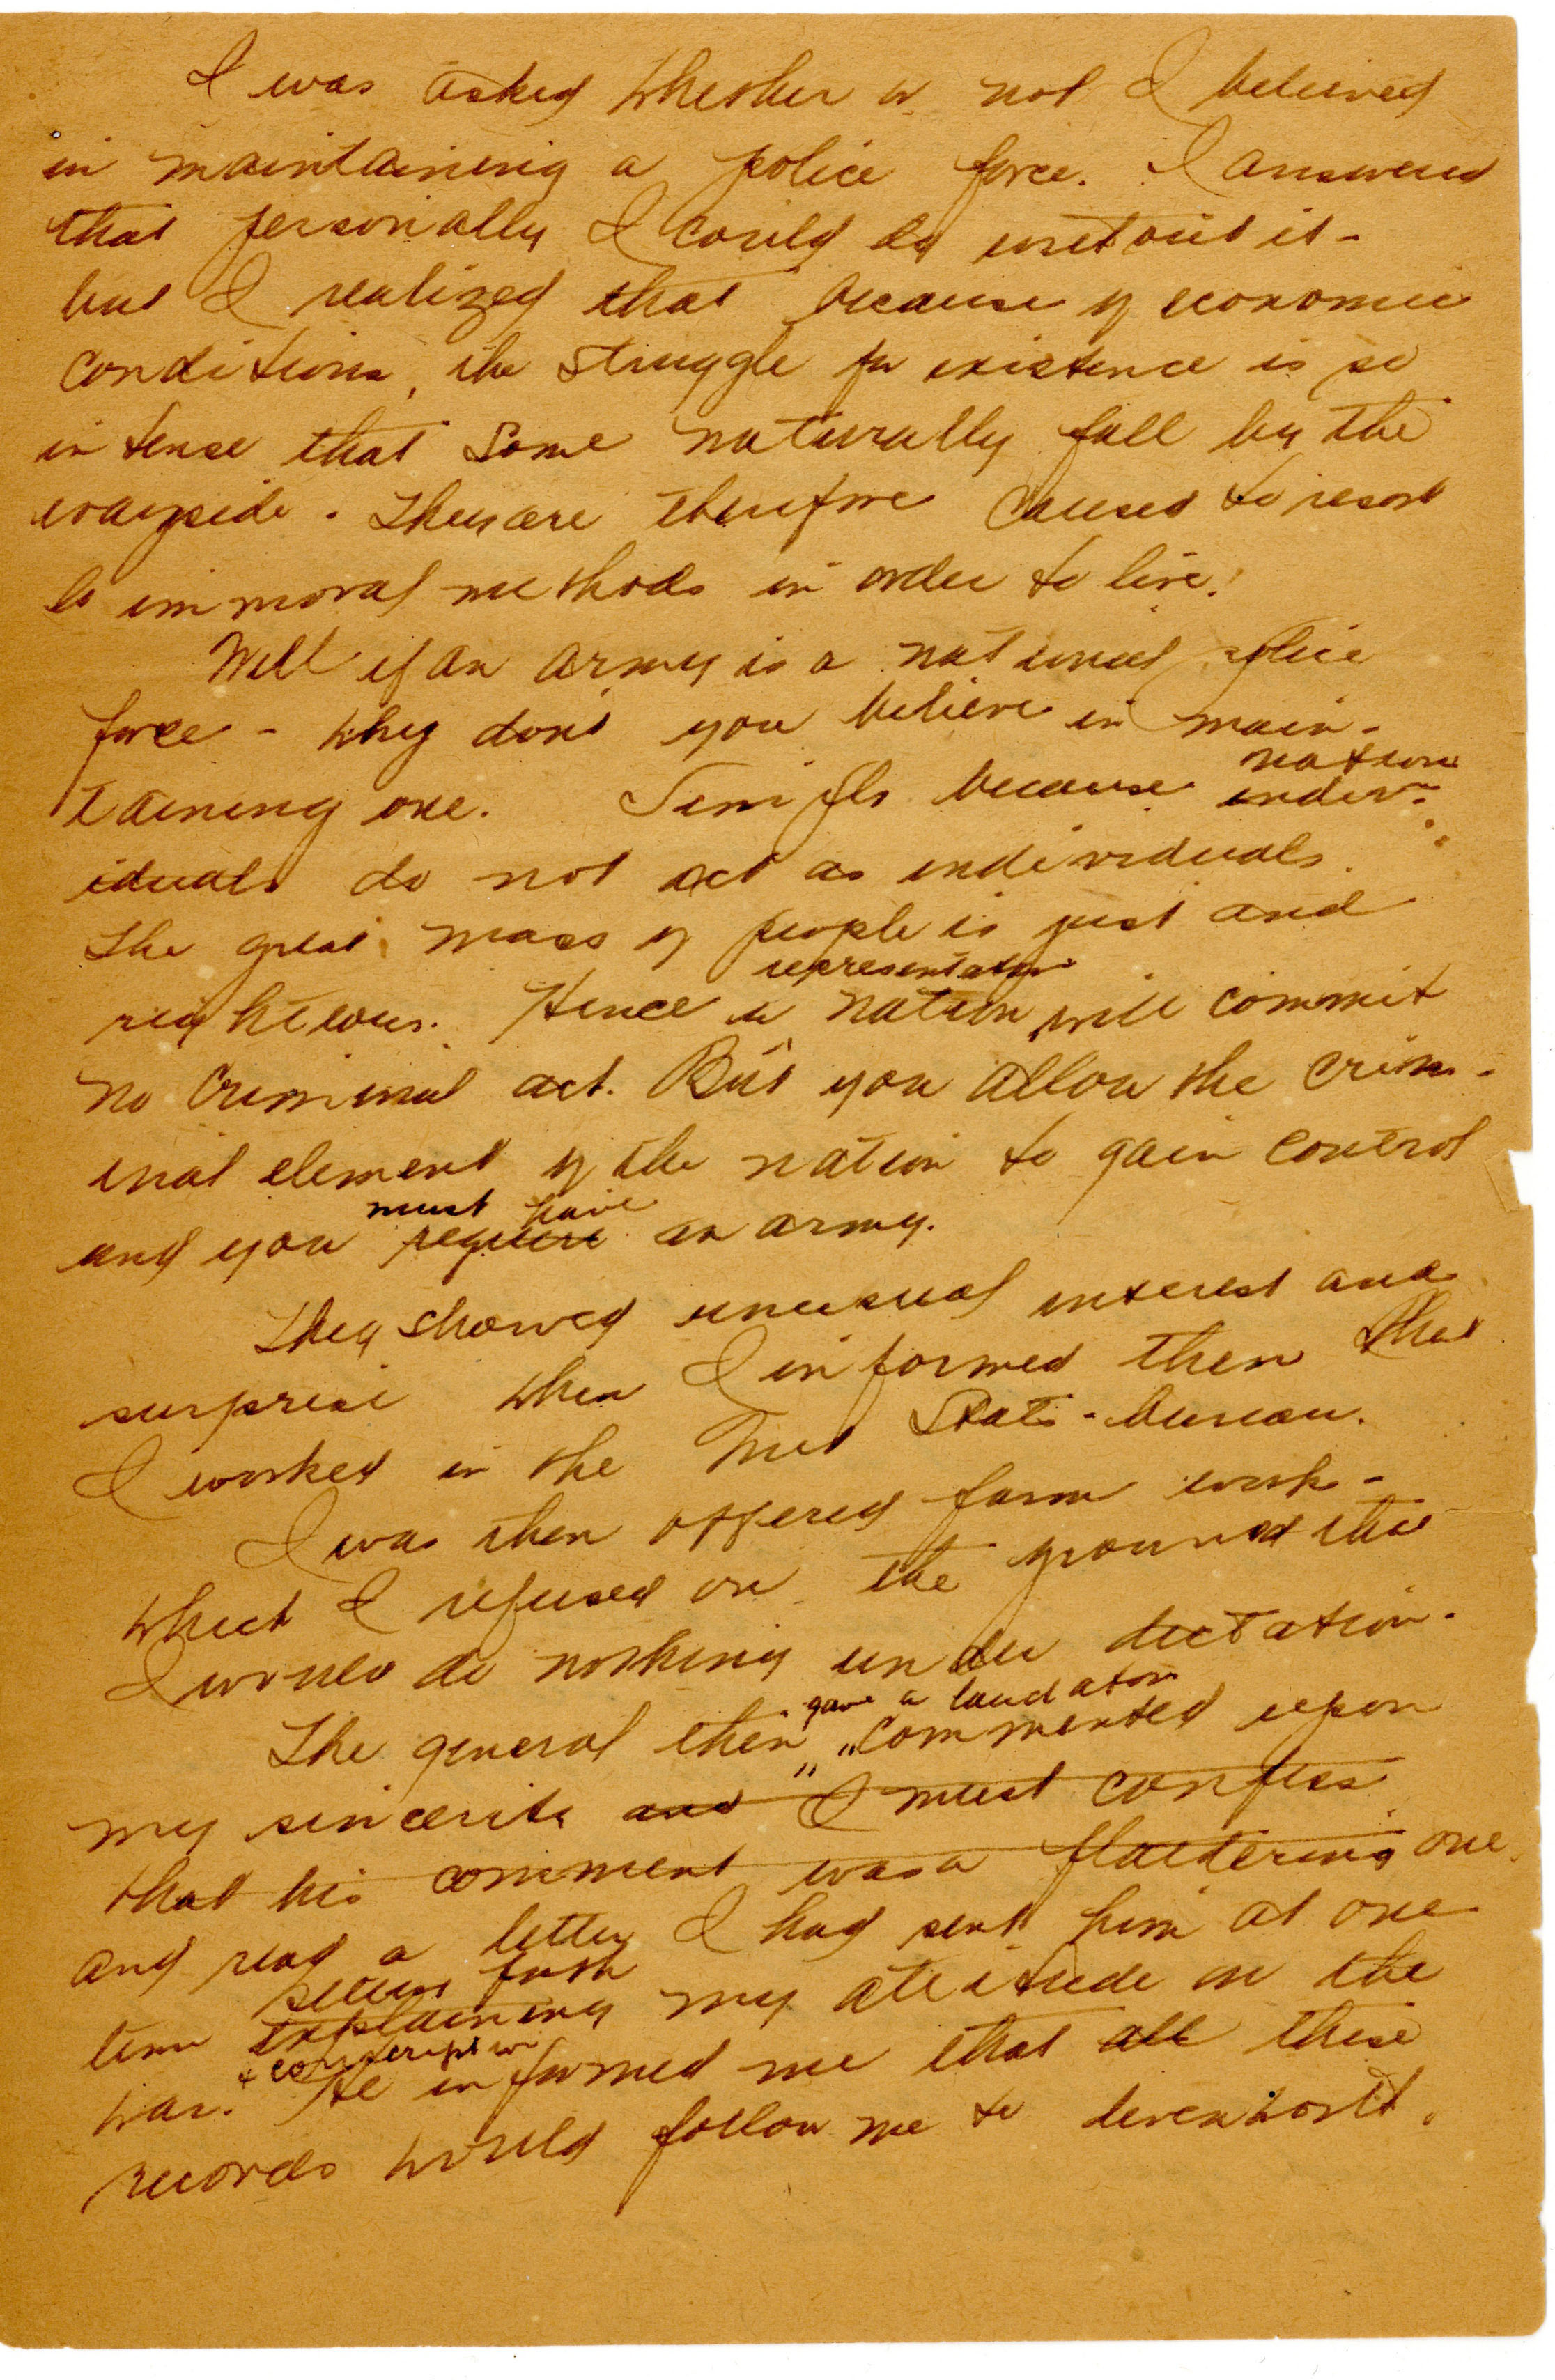 I was asked whether or not I believed
in maintaining a police force. I answered
that personally I could do without it -
but I realized that because of economic
conditions, the struggle for existence is so
intense that some naturally fall by the
wayside. They are therefore caused to resort
to immoral methods in order to live.
Well if an army is a national police
force - why don't you believe in main-
taining one. Simply because
nations
indiv-
iduals do not act as individuals.
The great mass of people is just and
representative
righteous. Hence a nation will commit
no criminal act. But you allow the crim-
inal element of the nation to gain control
must have
and you require an army.
They showed unusual interest and
surprise when I informed them that
I worked in the Med Stats - bureau.
I was then offered farm work -
which I refused on the ground that
I would do nothing under dictation.
gave a laudatory
The general then commented upon
my sincerity and I must confess
that his comment was a flattering one.
and read a letter I had sent him at one
setting forth
time explaining my attitude on the
& conscription
war. He informed me that all these
records would follow me to Levenworth.